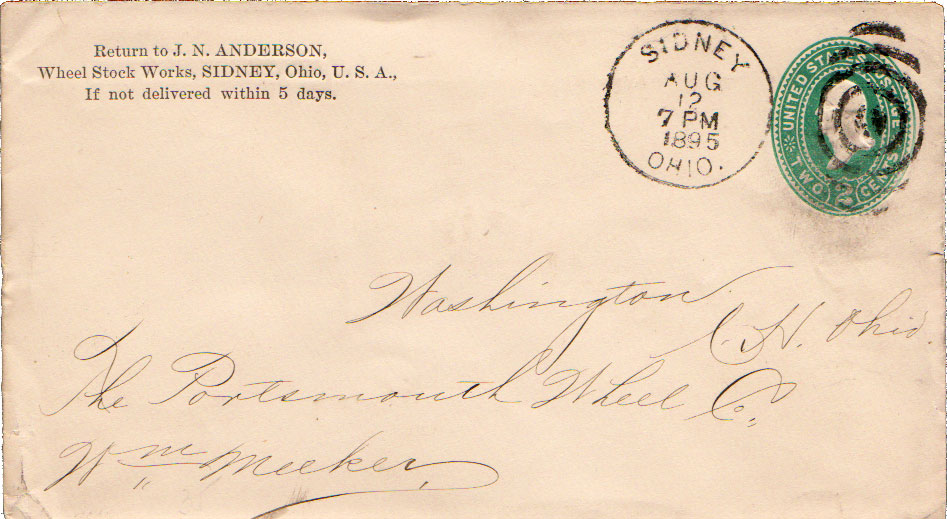 Return to J. N. ANDERSON,
Wheel Stock Works, SIDNEY, Ohio, U. S. A.,
If not delivered within 5 days.
SIDNEY
AUG
12
7 PM
1895
OHIO.
UNITED STATES POSTAGE
TWO 2 CENTS
Washington
C. H. Ohio.
The Portsmouth Wheel Co.,
Wm Meeker